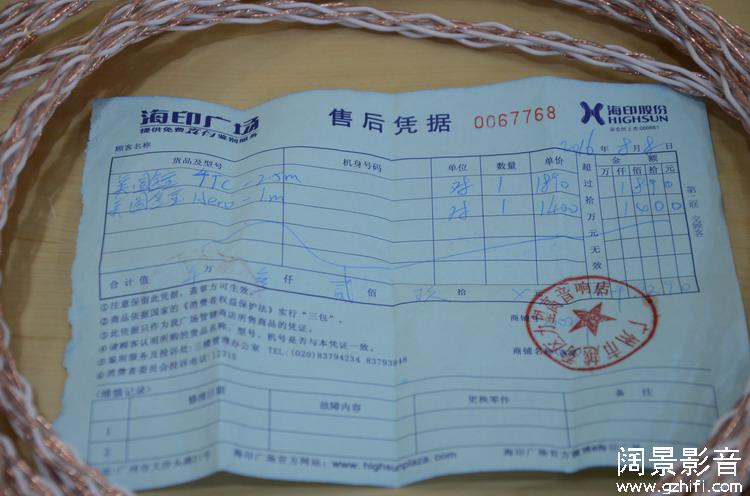 海印广场
提供免费真伪鉴别服务
售后凭据 0067768
海印股份
HIGHSUN
顾客名称
2016年8月8日
货品及型号 机身号码 单位 数量 单价 超过拾万元无效 金额
万仟佰拾元
4TC-2.5m 对 1 1890 1890
Hero-1m 对 1 1400 1400
第二联 交顾客
合计值 万 叁仟 贰佰 玖拾
①注意保留此凭据,盖章方可生效。
②商品依据国家的《消费者权益保护法》实行“三包”。
③此凭据只作为我广场管辖商店所售商品的凭证。
④请顾客认明所购的货品名称、型号、机号是否与本凭证一致。
⑤鉴别服务及投诉处:三楼管理办公室 TEL:(020)83794234 83793848
⑥消费者委员会投诉电话:12315
商铺
商铺名称
音响店
广州市越
《维修记录》
修理日期 故障内容 更换零件 备注
1
2
海印广场官方网站:www.highsunplaza.com
阔景影音
www.gzhifi.com